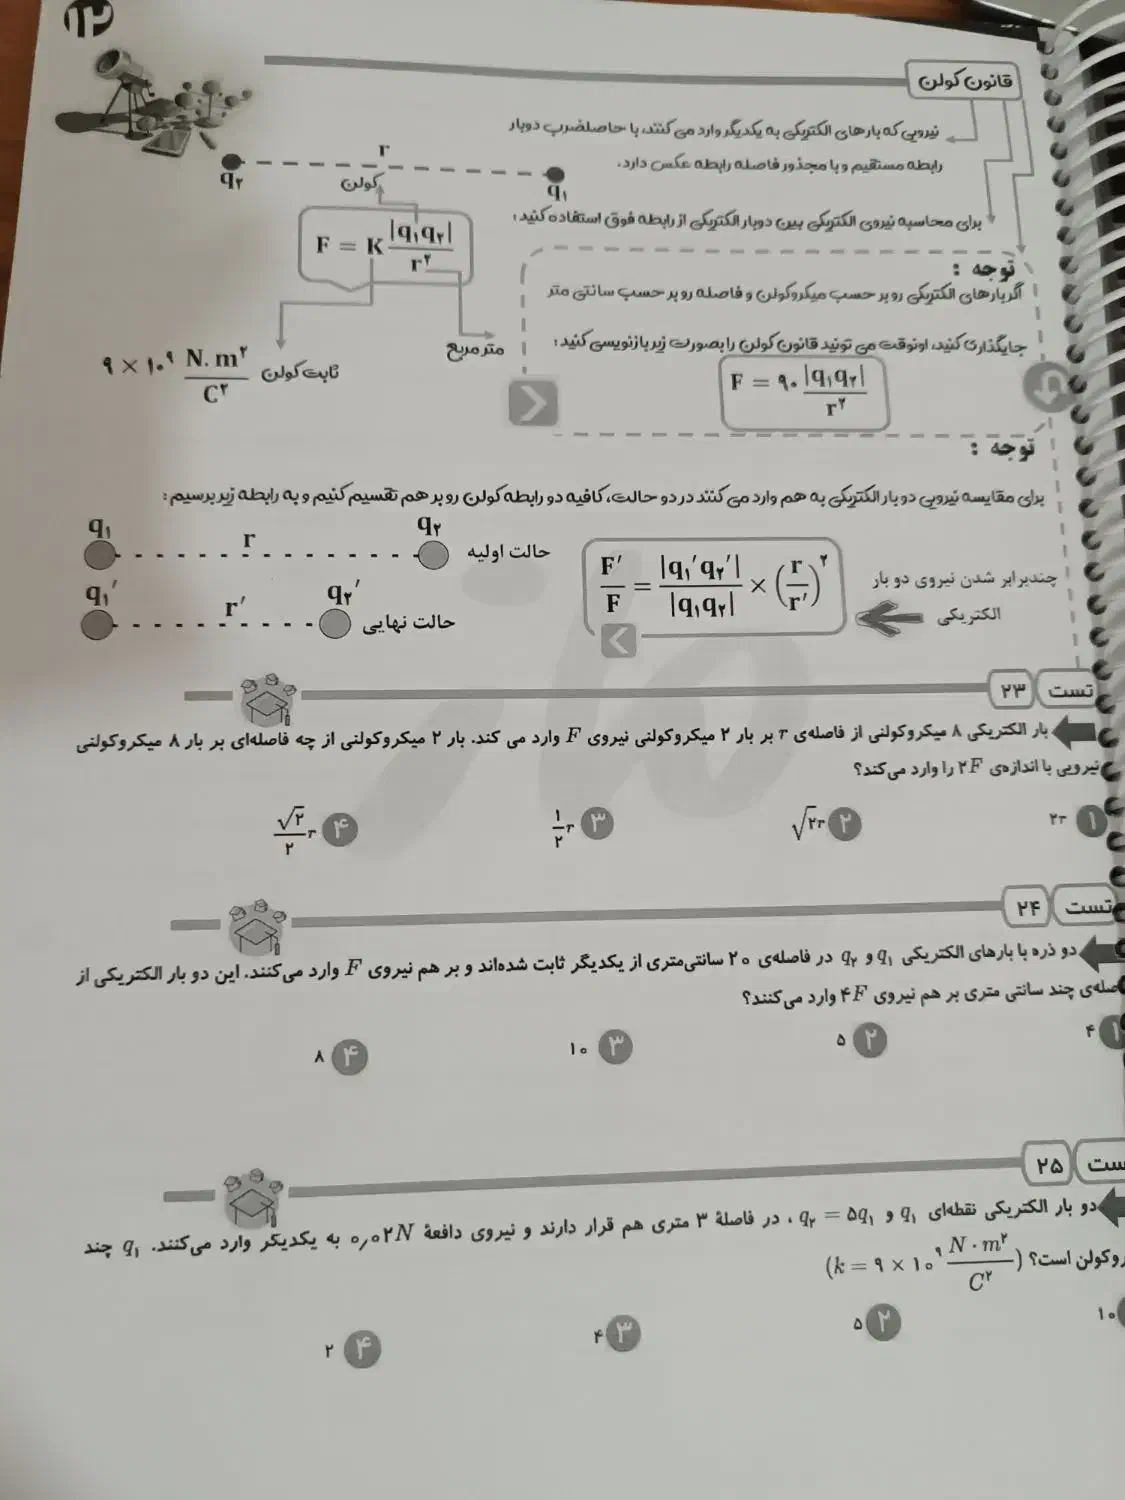 ۱۲
قانون کولن
نیرویی که بارهای الکتریکی به یکدیگر وارد می کنند، با حاصلضرب دوبار
رابطه مستقیم و با مجذور فاصله رابطه عکس دارد.
r
q۲ q۱
برای محاسبه نیروی الکتریکی بین دوبار الکتریکی از رابطه فوق استفاده کنید:
کولن
F = K |q۱q۲| / r۲
توجه :
اگر بارهای الکتریکی رو بر حسب میکروکولن و فاصله رو بر حسب سانتی متر
جایگذاری کنید، اونوقت می تونید قانون کولن را بصورت زیر بازنویسی کنید:
متر مربع
ثابت کولن ۹ × ۱۰^۹ N. m^۲ / C^۲
F = ۹۰ |q۱q۲| / r^۲
توجه :
برای مقایسه نیرویی دو بار الکتریکی به هم وارد می کنند در دو حالت، کافیه دو رابطه کولن رو بر هم تقسیم کنیم و به رابطه زیر برسیم:
q۱ r q۲ حالت اولیه
q۱′ r′ q۲′ حالت نهایی
F′ / F = |q۱′q۲′| / |q۱q۲| × (r / r′)^۲
چندبرابر شدن نیروی دو بار
الکتریکی
تست ۲۳
بار الکتریکی ۸ میکروکولنی از فاصله‌ی r بر بار ۲ میکروکولنی نیروی F وارد می کند. بار ۲ میکروکولنی از چه فاصله‌ای بر بار ۸ میکروکولنی
نیرویی با اندازه‌ی ۲F را وارد می‌کند؟
۱ ۲r ۲ √۲r ۳ ۱/۲ r ۴ √۲/۲ r
تست ۲۴
دو ذره با بارهای الکتریکی q۱ و q۲ در فاصله‌ی ۲۰ سانتی‌متری از یکدیگر ثابت شده‌اند و بر هم نیروی F وارد می‌کنند. این دو بار الکتریکی از
صله‌ی چند سانتی متری بر هم نیروی ۴F وارد می‌کنند؟
۱ ۴ ۲ ۵ ۳ ۱۰ ۴ ۸
ست ۲۵
دو بار الکتریکی نقطه‌ای q۱ و q۲ = ۵q۱ ، در فاصلهٔ ۳ متری هم قرار دارند و نیروی دافعهٔ ۰٫۰۲N به یکدیگر وارد می‌کنند. q۱ چند
روکولن است؟ (k = ۹ × ۱۰^۹ N · m^۲ / C^۲)
۱۰ ۲ ۵ ۳ ۴ ۴ ۲